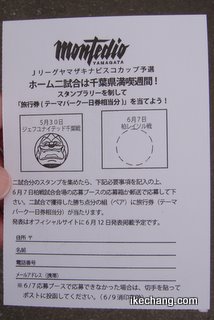 montedio
YAMAGATA
Jリーグヤマザキナビスコカップ予選
ホーム二試合は千葉県満喫週間!
スタンプラリーを制して
「旅行券(テーマパーク一日券相当分)」を当てよう!
5月30日
ジェフユナイテッド千葉戦
6月7日
柏レイソル戦
二試合分のスタンプを集めたら、下記必要事項を記入の上、
6月7日柏戦試合会場の応募ブースの応募箱か郵送で応募して下さ
い。二試合で獲得した勝ち点分の組(ペア)に旅行券(テーマパ
ーク一日券相当分)が当たります。
発表はオフィシャルサイトにて6月12日発表掲載予定です。
住所 〒
氏名
電話番号
メールアドレス(携帯)
※6/7応募ブースで応募できなかった場合は、切手を貼って
ポストに投函してください。(6/9消印有
ikechang.com